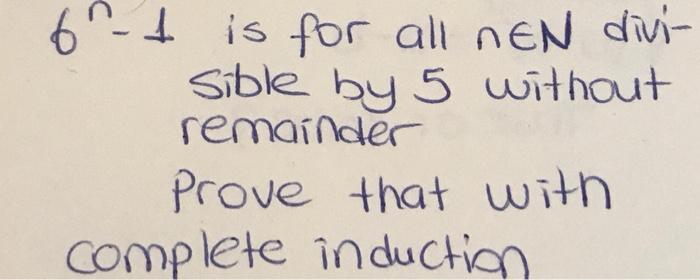 6ⁿ-1 is for all n∈N divi-
sible by 5 without
remainder
Prove that with
complete induction